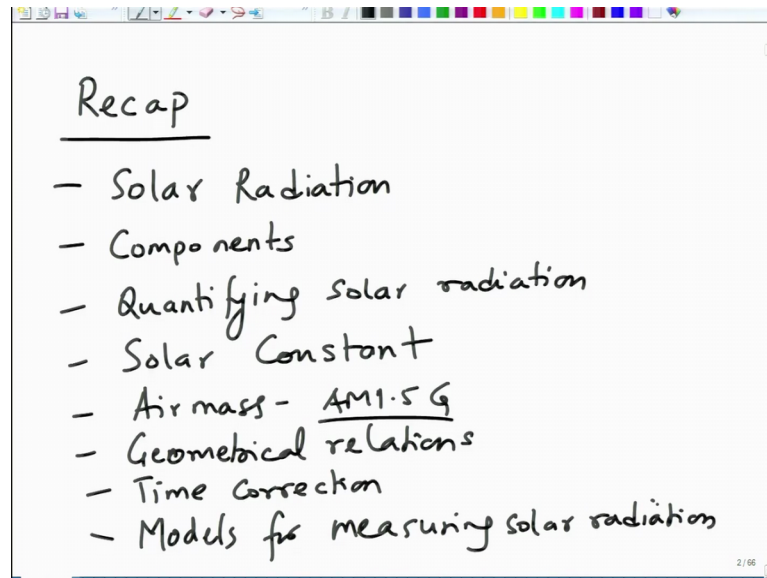 Recap
- Solar Radiation
- Components
- Quantifying solar radiation
- Solar Constant
- Air mass - AM1.5 G
- Geometrical relations
- Time correction
- Models for measuring solar radiation
2/66